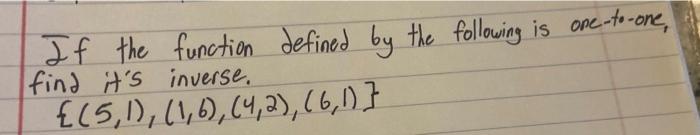 If the function defined by the following is one-to-one,
find it's inverse.
{(5,1), (1,6), (4,2), (6,1)}